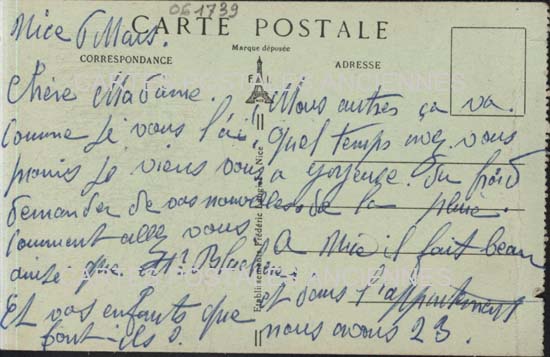 061739
CARTE POSTALE
Marque déposée
CORRESPONDANCE
ADRESSE
E. A. L.
Nice 6 Mars.
Chère Madame.
Comme je vous l'ai
promis je viens vous
demander de vos nouvelles
Comment allez vous
ainsi que Mr
Et vos enfants que
font-ils ?
Etablissements Frédéric Nice
Nous autres ça va.
Quel temps avez vous
a Goyeuze. du froid
de la pluie.
A Nice il fait beau
et dans l'appartement
nous avons 23.
CARTES POSTALES ANCIENNES
CARTES POSTALES ANCIENNES